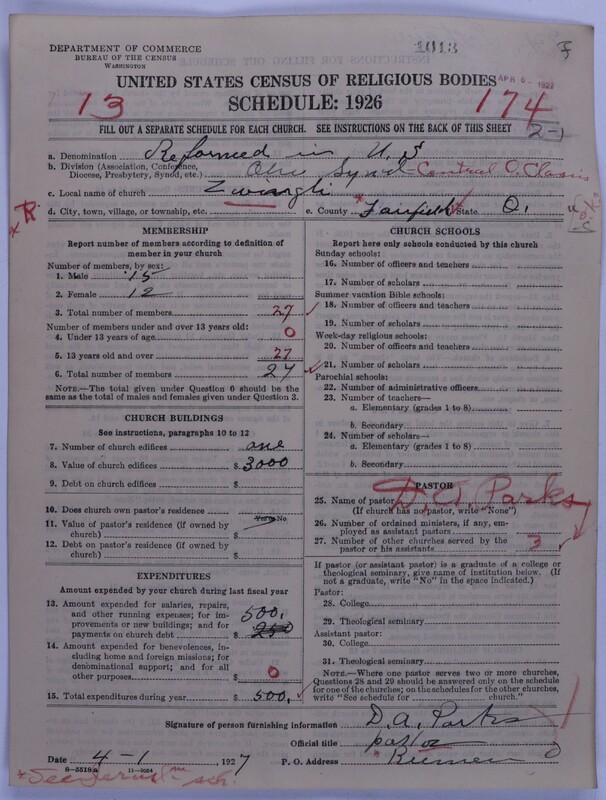 DEPARTMENT OF COMMERCE
BUREAU OF THE CENSUS
WASHINGTON
1013
APR 6 1927
UNITED STATES CENSUS OF RELIGIOUS BODIES
13
SCHEDULE: 1926
174
FILL OUT A SEPARATE SCHEDULE FOR EACH CHURCH. SEE INSTRUCTIONS ON THE BACK OF THIS SHEET
2-1
a. Denomination Reformed in U. S
b. Division (Association, Conference, Diocese, Presbytery, Synod, etc.) Ohio Synod - Central O. Classis
c. Local name of church Zwingli
R
d. City, town, village, or township, etc.
e. County Fairfield State O.
MEMBERSHIP
Report number of members according to definition of member in your church
Number of members, by sex:
1. Male 15
2. Female 12
3. Total number of members 27
Number of members under and over 13 years old:
4. Under 13 years of age 0
5. 13 years old and over 27
6. Total number of members 27
NOTE.—The total given under Question 6 should be the same as the total of males and females given under Question 3.
CHURCH BUILDINGS
See instructions, paragraphs 10 to 12
7. Number of church edifices one
8. Value of church edifices $ 3000
9. Debt on church edifices $
10. Does church own pastor's residence Yes or No
11. Value of pastor's residence (if owned by church) $
12. Debt on pastor's residence (if owned by church) $
EXPENDITURES
Amount expended by your church during last fiscal year
13. Amount expended for salaries, repairs, and other running expenses; for improvements or new buildings; and for payments on church debt $ 500. 250
14. Amount expended for benevolences, including home and foreign missions; for denominational support; and for all other purposes $ 0
15. Total expenditures during year $ 500.
CHURCH SCHOOLS
Report here only schools conducted by this church
Sunday schools:
16. Number of officers and teachers
17. Number of scholars
Summer vacation Bible schools:
18. Number of officers and teachers
19. Number of scholars
Week-day religious schools:
20. Number of officers and teachers
21. Number of scholars
Parochial schools:
22. Number of administrative officers
23. Number of teachers—
a. Elementary (grades 1 to 8)
b. Secondary
24. Number of scholars—
a. Elementary (grades 1 to 8)
b. Secondary
PASTOR
25. Name of pastor D. A. Parks
(If church has no pastor, write "None")
26. Number of ordained ministers, if any, employed as assistant pastors
27. Number of other churches served by the pastor or his assistants 3
If pastor (or assistant pastor) is a graduate of a college or theological seminary, give name of institution below. (If not a graduate, write "No" in the space indicated.)
Pastor:
28. College
29. Theological seminary
Assistant pastor:
30. College
31. Theological seminary
NOTE.—Where one pastor serves two or more churches, Questions 28 and 29 should be answered only on the schedule for one of the churches; on the schedules for the other churches, write "See schedule for church."
Signature of person furnishing information D. A. Parks
Official title pastor
Date 4-1 1927
P. O. Address O
8-5518a 11-9054